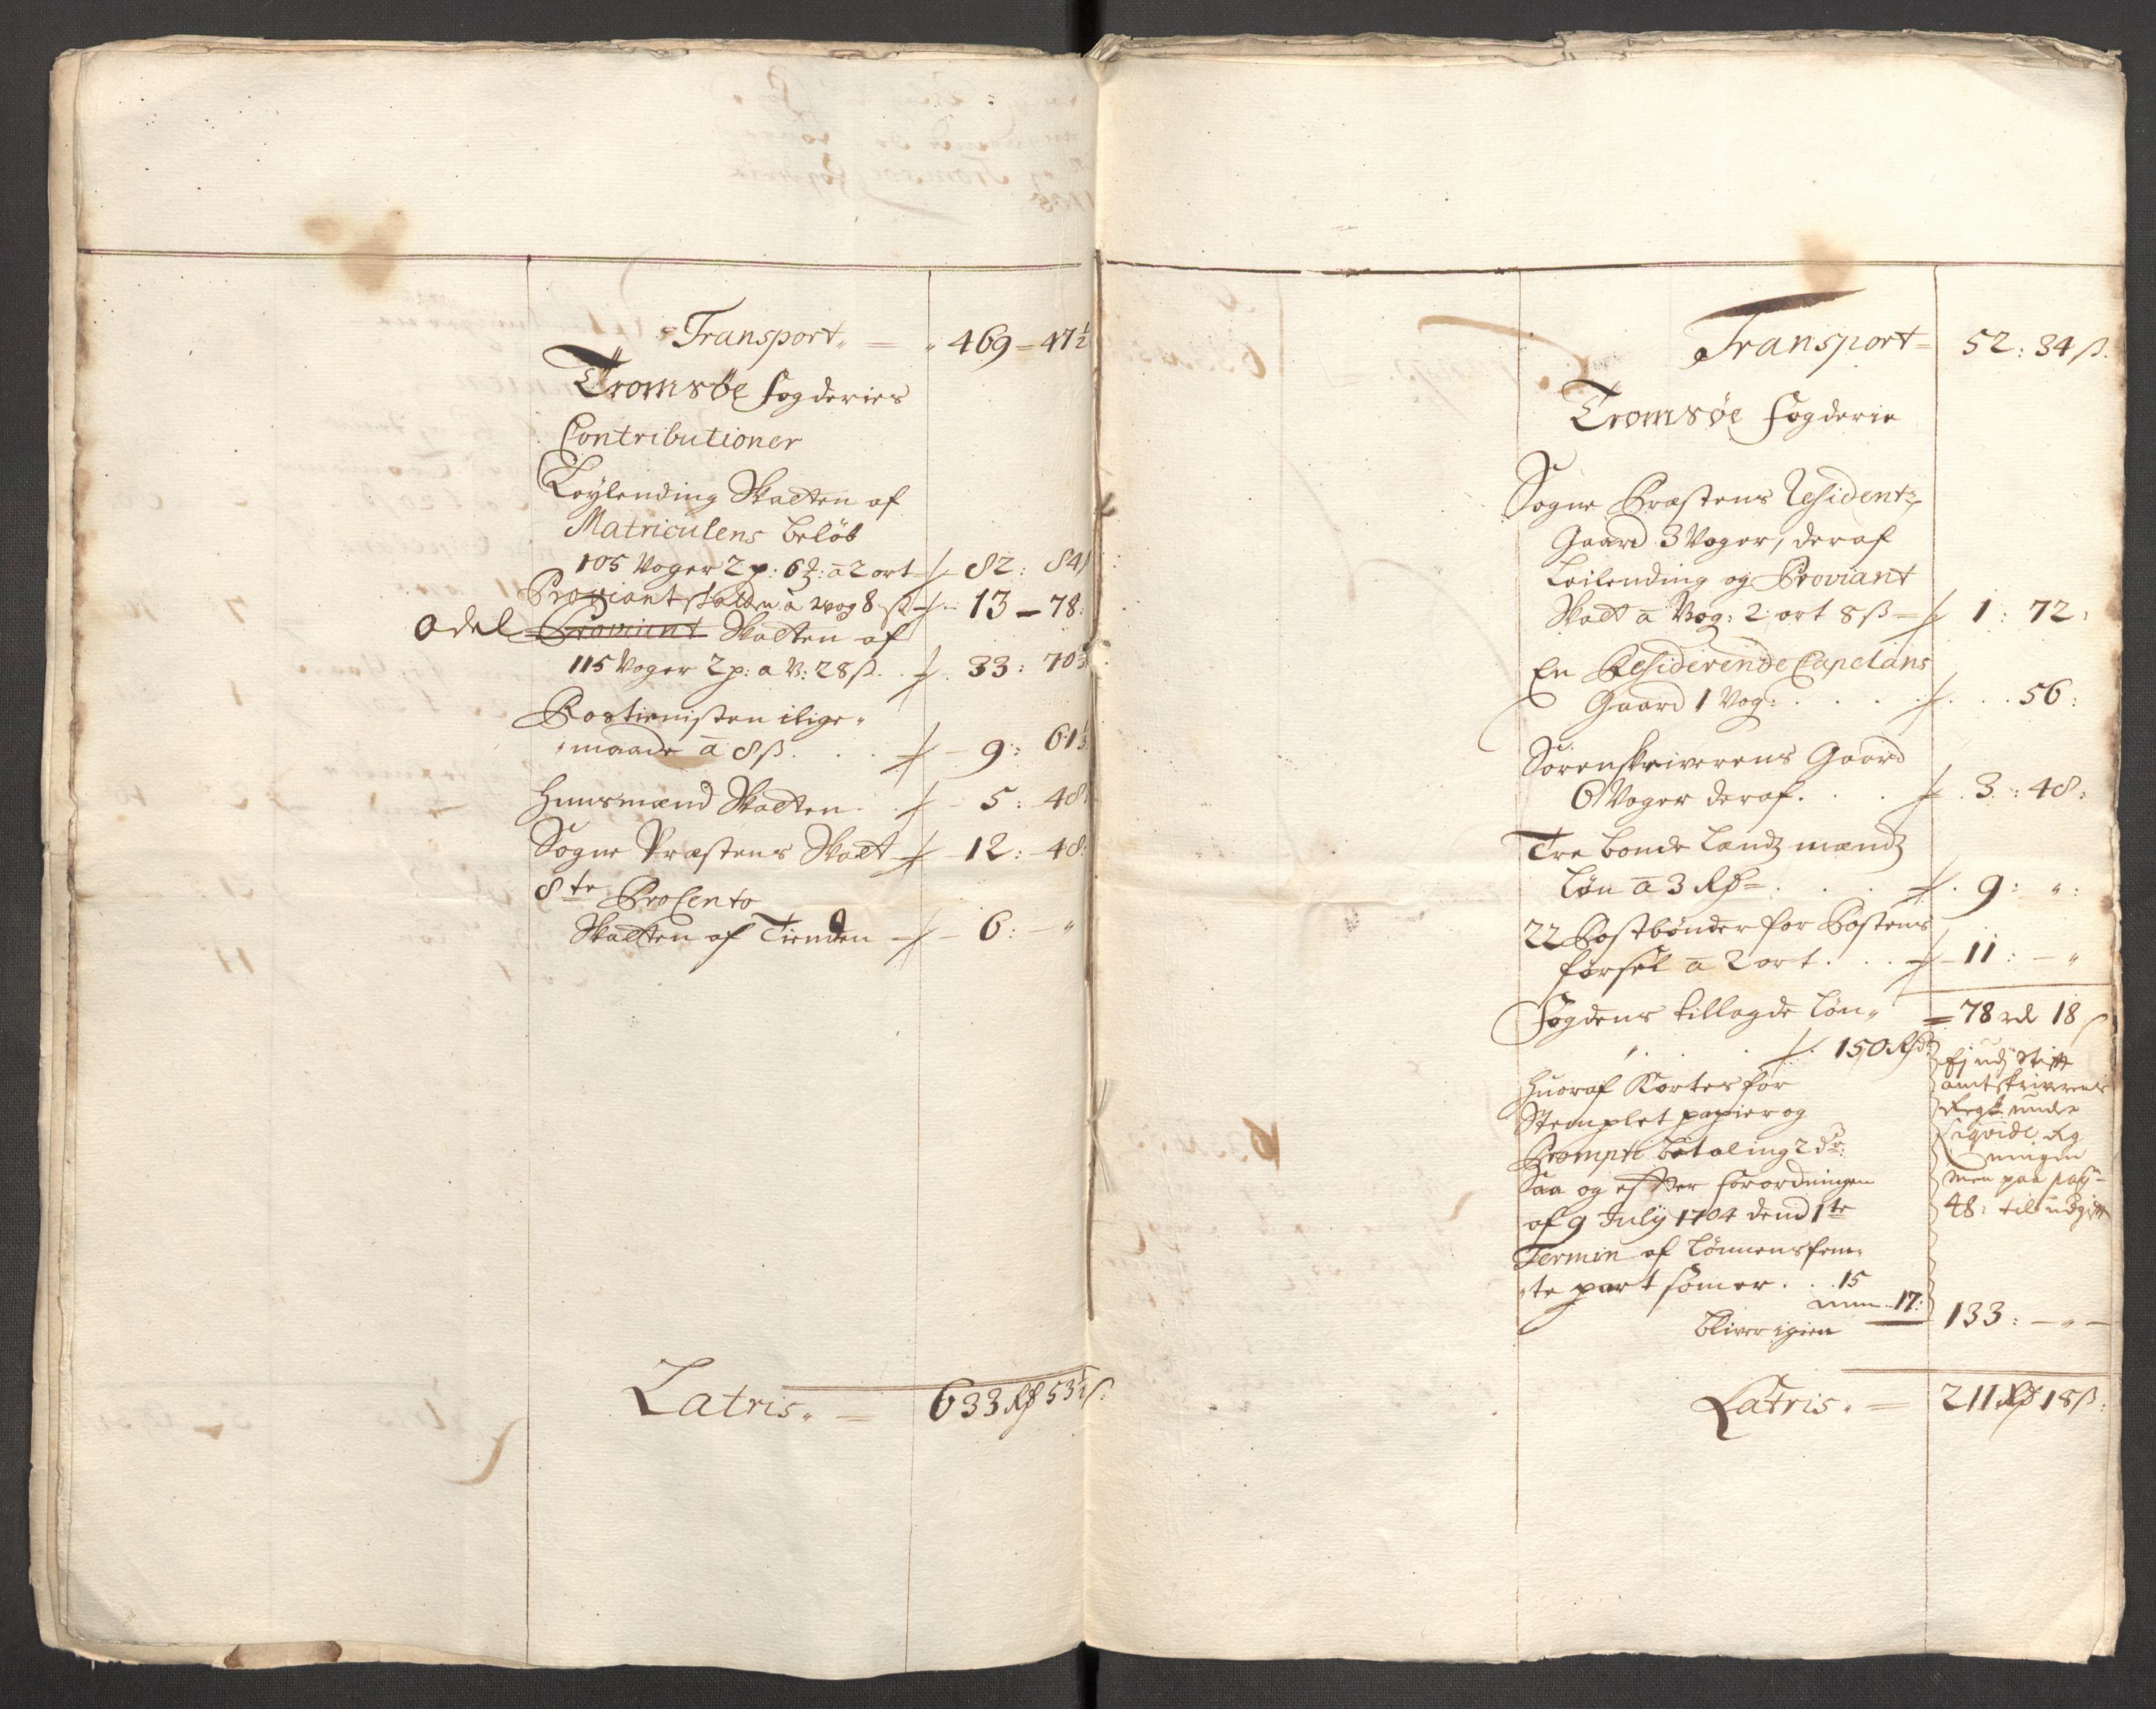 Transport = 469 = 47½
Tromsöe fogderies
Contributioner
Leylending Skatten af
Matriculens beløb
105 Voger 2 p: 6 : a 2 ort 82: 84
Proviantskatten a vog 8 ß 13 - 78:
Odel Proviant Skatten af
115 Voger 2 p: a V: 28 ß 33: 70
Rostienisten i lige
maade a 8 ß . . . 9: 61
Huusmænd Skatten . . 5: 48
Sogne Præstens Skatt 12: 48:
8te ProCento
Skatten af Tienden 6: - "
Latris. = 633 Rd 53½ ß:
Transport = 52: 34 ß.
Tromsöe fogderie
Sogne Præstens Residentz
Gaard 3 Voger, deraf
Leilending og Proviant
Skatt a Vog: 2 ort 8 ß = 1: 72:
En Residerende Capelans
Gaard 1 Vog: . . . . . 56:
Sorenskriverens Gaard
6 Voger deraf . . . 3: 48:
Tre bonde Landz mændz
løn a 3 Rd = . . . 9: ":
22 Postbønder for Postens
førsel a 2 ort . . . 11: - "
Fogdens tillagde løn = 78 rd 18 ß
150 Rd
Huoraf Kortes for
Stemplet papier og
Prompte betaling 2 dr:
Saa og efter forordningen
af 9 July 1704 dend 1te
Termin af lønnens fem
te part som er . . 15
17:
bliver igien 133: - " -
Ej udj Stift
amtskriverens
Regn: under
liqvide
ningen
men paa pag
48: til udgift
Latris. = 211 Rd 18 ß: